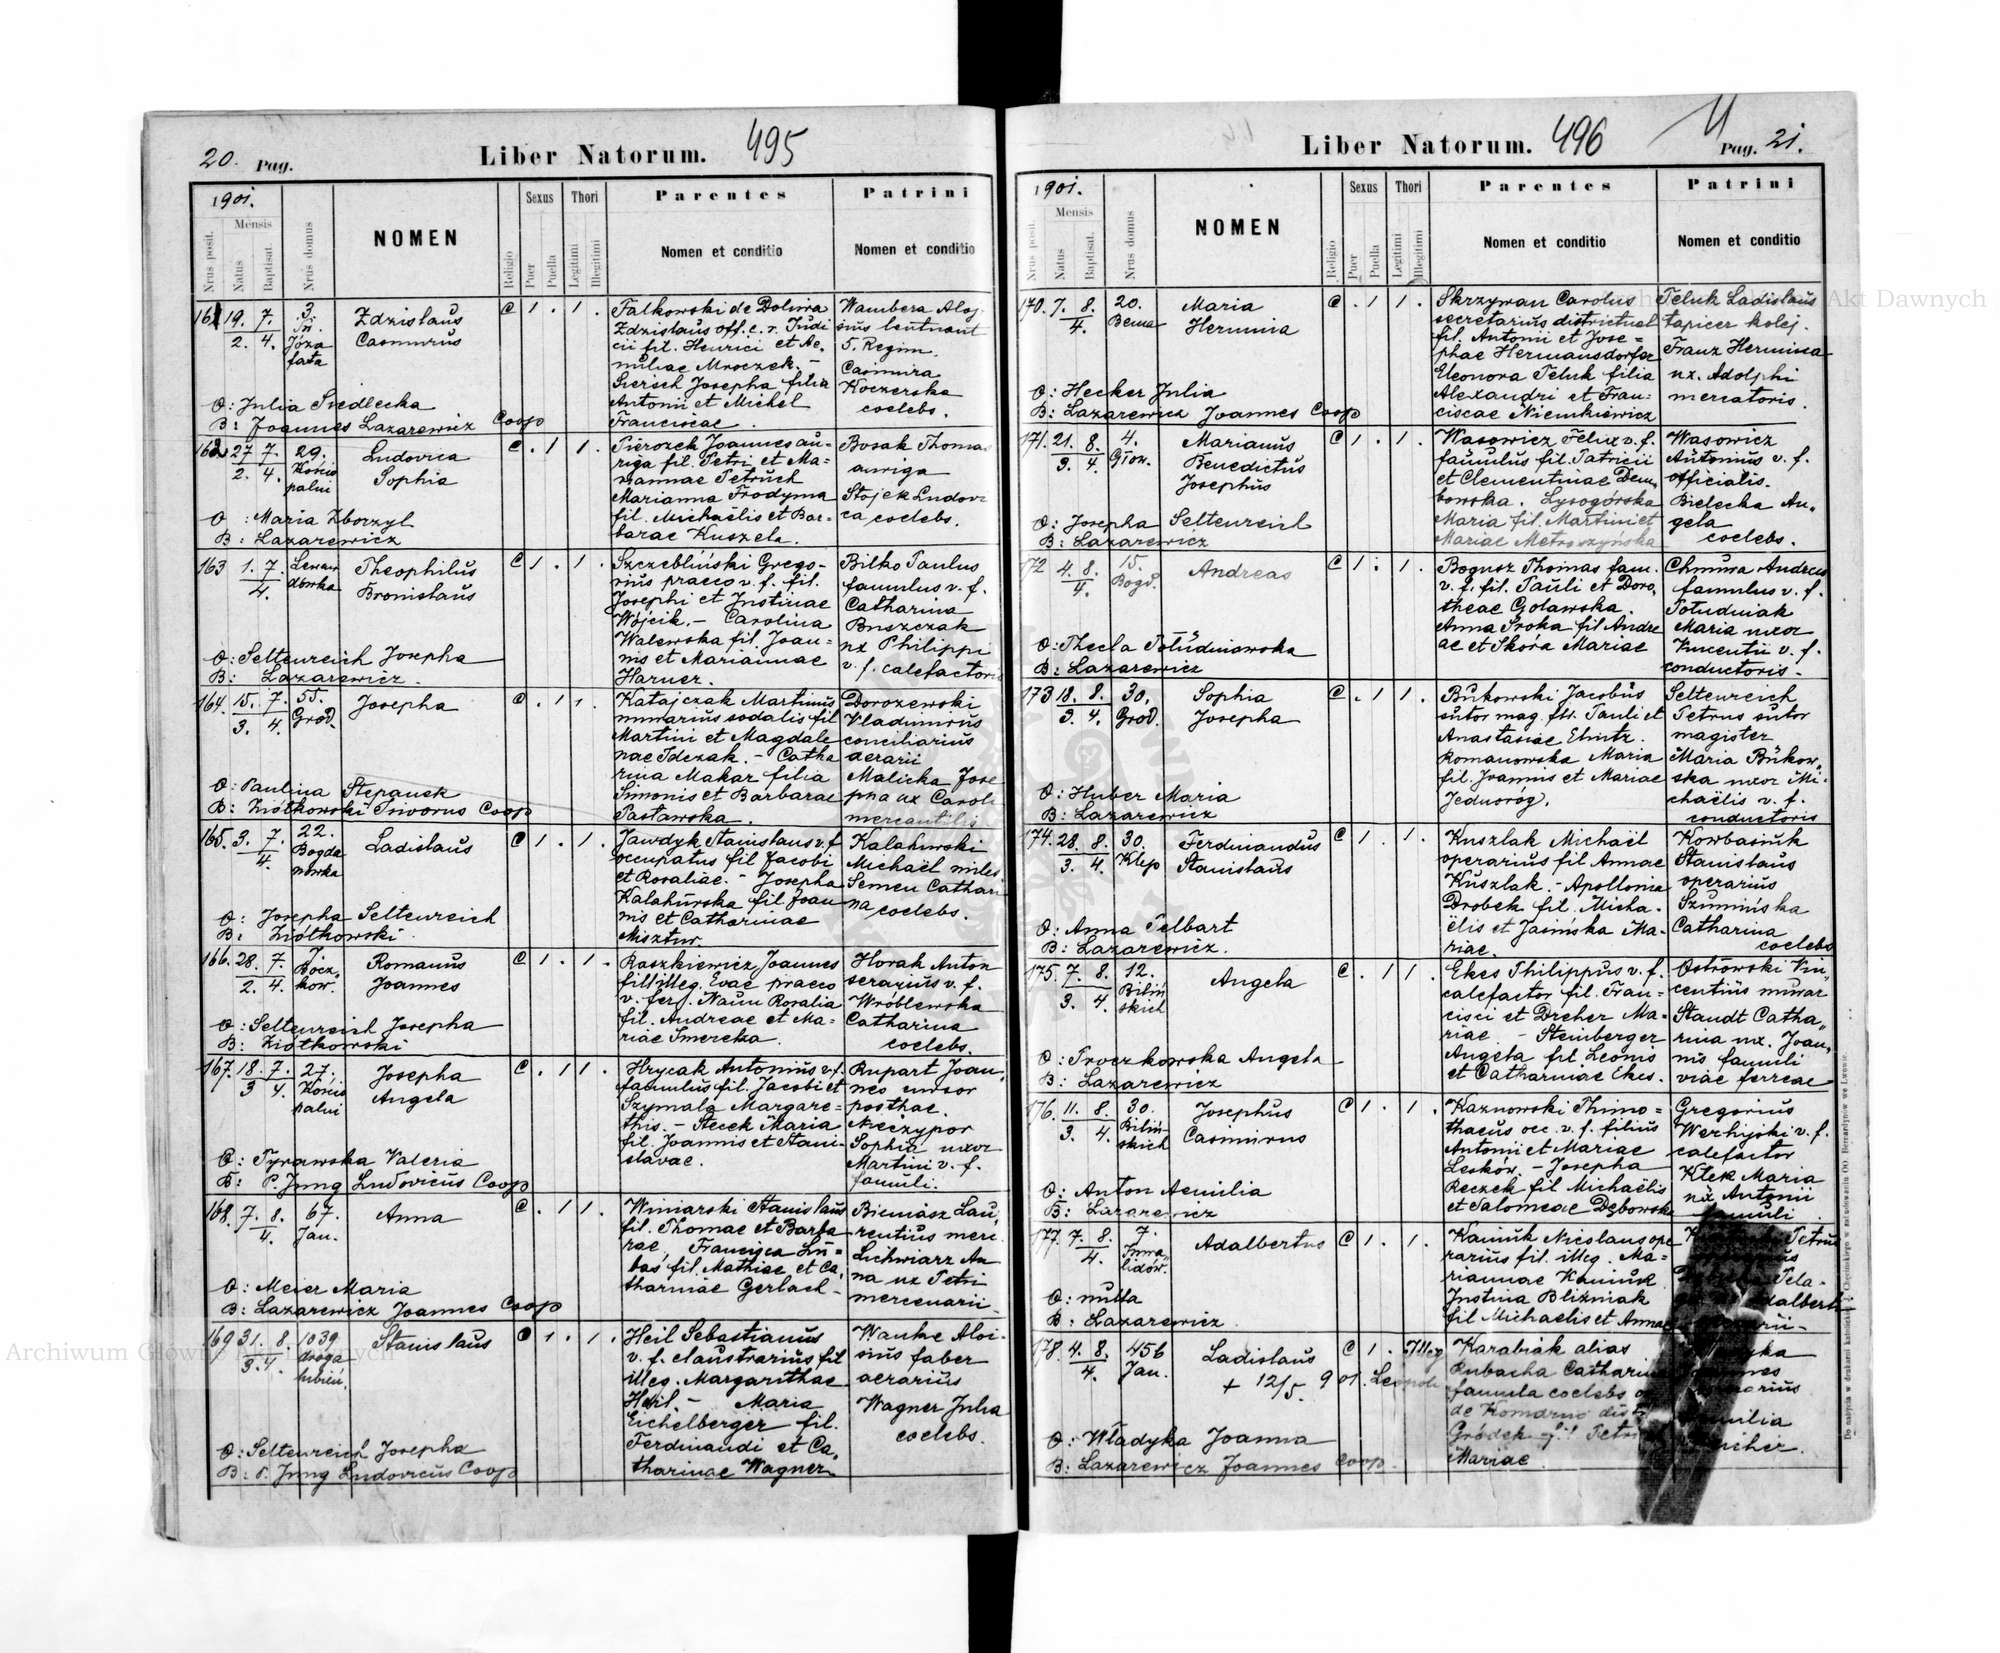 20. Pag.
Liber Natorum. 495
1901.
Nrus posit.
Mensis
Natus
Baptisat.
Nrus domus
NOMEN
Religio
Sexus
Puer
Puella
Thori
Legitimi
Illegitimi
Parentes
Nomen et conditio
Patrini
Nomen et conditio
161 19. 7.
2. 4.
3.
Józa
fata
Zdzislaus
Casimirus
C 1 . 1 .
Falkowski de Doliwa
Zdzislaus off. c. r. Judi
cii fil. Henrici et Ae.
miliae Mroczek. –
Siersch Josepha filia
Antonii et Michel
Franciscae.
Wambera Aloj
sius leutnant
5. Regim.
Casimira
Koczerska
coelebs.
O: Julia Siedlecka
B: Joannes Lazarewicz Coop
162 27 7.
2. 4.
29.
Kościo
palni
Ludovica
Sophia
C . 1 1 .
Pierozek Joannes au=
riga fil. Petri et Ma=
riannae Petruch
Marianna Frodyma
fil. Michaëlis et Bar-
barae Kuszela.
Bosak Thomas
auriga
Stojek Ludovi
ca coelebs.
O: Maria Zborzyl
B: Lazarewicz
163 1. 7.
4.
Lewan
dowka
Theophilus
Bronislaus
C 1 . 1 .
Szczebliński Grego-
rius praeco v. f. fil.
Josephi et Justinae
Wójcik. – Carolina
Walewska fil. Joan=
nis et Mariannae
Harner.
Bilko Paulus
famulus v. f.
Catharina
Buszczak
ux Philippi
v. f. calefactoris
O: Seltenreich Josepha
B: Lazarewicz.
164 15. 7.
3. 4.
55.
Grod.
Josepha
C . 1 1 .
Katajczak Martinus
murarius sodalis fil
Martini et Magdale
nae Idczak. – Catha
rina Makar filia
Simonis et Barbarae
Pastawska.
Dorozewski
Vladimirus
conciliarius
aerarii
Malicka Jose
pha ux Caroli
mercantilis
O: Paulina Stepanek
B: Ziółkowski Coop
165. 3. 7.
4.
22.
Bogda
nówka
Ladislaus
C 1 . 1 .
Jawdyk Stanislaus v. f
occupatus fil Jacobi
et Rosaliae. – Josepha
Kalahurska fil Joan
nis et Catharinae
Misztur.
Kalahurski
Michaël miles
Semen Cathari
na coelebs.
O: Josepha Seltenreich
B: Ziółkowski.
166. 28. 7.
2. 4.
7.
kow.
Romanus
Joannes
C 1 . 1 .
Raszkiewicz Joannes
fil illeg. Evae praeco
v. ferr. Naun Rosalia
fil. Andreae et Ma-
riae Smereka.
Horak Anton
serarius v. f.
Wróblewska
Catharina
coelebs.
O: Seltenreich Josepha
B: Ziółkowski
167. 18. 7.
3 4.
27.
Kościo
palni
Josepha
Angela
C . 1 1 .
Hrycak Antonius v. f.
famulus fil. Jacobi et
Szymala Margare=
this. – Stecek Maria
fil. Joannis et Stani-
slavae.
Rupart Joan,
nes cursor
posthae.
Nieczypor
Sophia uxor
Martini v. f.
famuli.
O: Tyrawska Valeria
B: P. Jung Ludovicus Coop
168. 7. 8.
4.
67.
Jan.
Anna
C . 1 1 .
Winiarski Stanislaus
fil. Thomae et Barba
rae, Francisca Lu=
bas fil. Mathiae et Ca,
tharinae Gerlach –
Biemasz Lau,
rentius merc.
Lichwiarz An
na ux Petri
mercenarii –
O: Meier Maria
B: Lazarewicz Joannes Coop
169 31. 8.
3. 4.
1039
droga
lubień.
Stanislaus
C 1 . 1 .
Heil Sebastianus
v. f. claustrarius fil
illeg. Margarithae
Heil. – Maria
Eichelberger fil.
Ferdinandi et Ca,
tharinae Wagner
Wanke Aloi-
sius faber
aerarius
Wagner Julia
coelebs.
O: Seltenreich Josepha
B: P. Jung Ludovicus Coop
Liber Natorum. 496
Pag. 21.
1901.
Nrus posit.
Mensis
Natus
Baptisat.
Nrus domus
NOMEN
Religio
Sexus
Puer
Puella
Thori
Legitimi
Illegitimi
Parentes
Nomen et conditio
Patrini
Nomen et conditio
170. 7. 8.
4.
20.
Bema
Maria
Hermina
C . 1 1 .
Skrzywan Carolus
secretarius districtual
fil. Antonii et Jose=
phae Hermansdorfer
Eleonora Teluk filia
Alexandri et Fran=
ciscae Niemkiewicz
Teluk Ladislaus
tapicer kolej.
Franz Hermina
ux. Adolphi
mercatoris.
O: Hecker Julia
B: Lazarewicz Joannes Coop
171. 21. 8.
3. 4.
4.
Głow.
Marianus
Benedictus
Josephus
C 1 . 1 .
Wasowicz Felix v. f.
famulus fil. Patricii
et Clementinae Dem,
bowska. Lysogórska
Maria fil. Martini et
Mariae Metroszyńska
Wasowicz
Antonius v. f.
officialis.
Bielecka An,,
gela
coelebs.
O: Josepha Seltenreich
B: Lazarewicz
172 4. 8.
4.
15.
Bogd.
Andreas
C 1 . 1 .
Bogusz Thomas fam.
v. f. fil. Pauli et Doro,
theae Golawska.
Anna Sroka fil Andre
ae et Skóra Mariae
Chmura Andreas
famulus v. f.
Poludniak
Maria uxor
Vincentii v. f.
conductoris –
O: Thecla Poludniowska
B: Lazarewicz
173 18. 8.
3. 4.
30.
Grod.
Sophia
Josepha
C . 1 1 .
Bukowski Jacobus
sutor mag. fil. Pauli et
Anastasiae Elintz.
Romanowska Maria
fil. Joannis et Mariae
Jednoróg.
Seltenreich
Petrus sutor
magister
Maria Bukow,
ska uxor Mi-
chaëlis v. f.
conductoris
O: Huber Maria
B: Lazarewicz
174. 28. 8.
3. 4.
30.
Klep
Ferdinandus
Stanislaus
C 1 . 1 .
Kuszlak Michaël
operarius fil Annae
Kuszlak. – Apollonia
Drobek fil. Micha-
ëlis et Jasińska Ma-
riae.
Kowbasiuk
Stanislaus
operarius
Szumińska
Catharina
coelebs
O: Anna Telbart
B: Lazarewicz.
175. 7. 8.
3. 4.
12.
Biliń
skich
Angela
C . 1 1 .
Ekes Philippus v. f.
calefactor fil. Fran=
cisci et Dreher Ma-
riae. Steinberger
Angela fil Leonis
et Catharinae Ekes.
Ostrowski Vin,
centius murar
Staudt Catha,,
rina ux. Joan,
nis famuli
viae ferreae
O: Proczkowska Angela
B: Lazarewicz
176. 11. 8.
3. 4.
30.
Biliń-
skich
Josephus
Casimirus
C 1 . 1 .
Kaznowski Thimo=
thaeus occ. v. f. filius
Antonii et Mariae
Lesków. – Josepha
Reczek fil Michaëlis
et Salomeae Dębowska
Gregorius
Werhijski v. f.
calefactor
Klek Maria
ux Antonii
famuli
O: Anton Aemilia
B: Lazarewicz
177. 7. 8.
4.
7.
Inwa,
lidów.
Adalbertus
C 1 . 1 .
Kaniuk Nicolaus ope
rarius fil. illeg. Ma=
riannae Kaniuk
Justina Blizniak
fil Michaelis et Annae
Petrus
Pela-
Adalberti
O: nulla
B: Lazarewicz.
178. 4. 8.
4.
456
Jan.
Ladislaus
+ 12/5. 901. Leopoli
C 1 . Illeg
Karabiak alias
Rubacha Catharina
famula coelebs
de Komarno distr
Gródek fil Petri
Mariae.
O: Władyka Joanna
B: Lazarewicz Joannes Coop.
Do nabycia w drukarni katolickiej J. Chęcińskiego zabudowanie OO. Bernardynów we Lwowie.
Archiwum Główne Akt Dawnych
Archiwum Główne Akt Dawnych